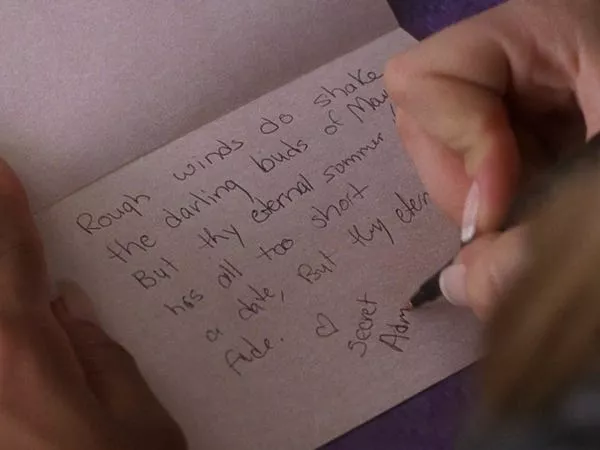 Rough winds do shake
the darling buds of May
But thy eternal sommer
has all too short
a date, But thy eter
fade. ♡ secret
Adm